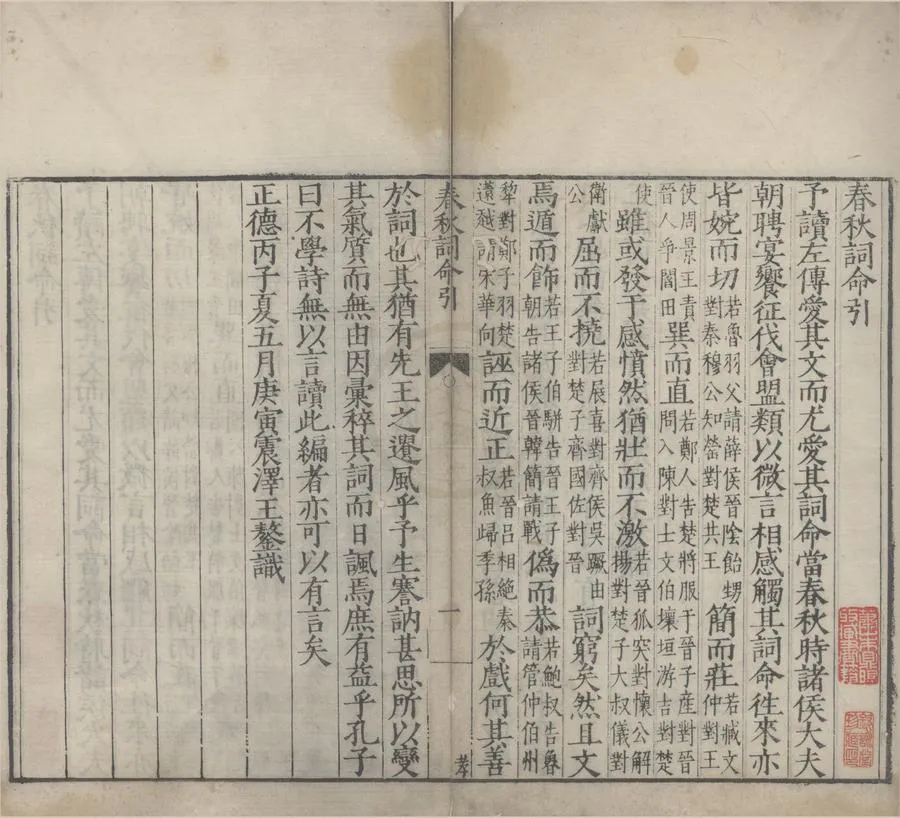 春秋詞命引
予讀左傳愛其文而尤愛其詞命當春秋時諸侯大夫
朝聘宴饗征伐會盟類以微言相感觸其詞命徃來亦
皆婉而切若魯羽父請薛侯晉陰飴甥對秦穆公知罃對楚共王簡而莊若臧文仲對王
使周景王責晉人爭閻田巽而直若鄭人告楚將服于晉子產對晉問入陳對士文伯壞垣游吉對楚
使雖或發于感憤然猶壯而不激若晉狐突對懷公解揚對楚子大叔儀對
衛獻公屈而不撓若展喜對齊侯吳蹶由對楚子齊國佐對晉詞窮矣然且文
焉遁而飾若王子伯駢告晉王子朝告諸侯晉韓簡請戰偽而恭若鮑叔告魯請管仲伯州
犂對鄭子羽楚薳越謂宋華向誣而近正若晉呂相絕秦叔魚歸季孫於戲何其善
春秋詞命引
一
於詞也其猶有先王之遺風乎予生謇訥甚思所以變
其氣質而無由因彙稡其詞而日諷焉庶有益乎孔子
曰不學詩無以言讀此編者亦可以有言矣
正德丙子夏五月庚寅震澤王鏊識